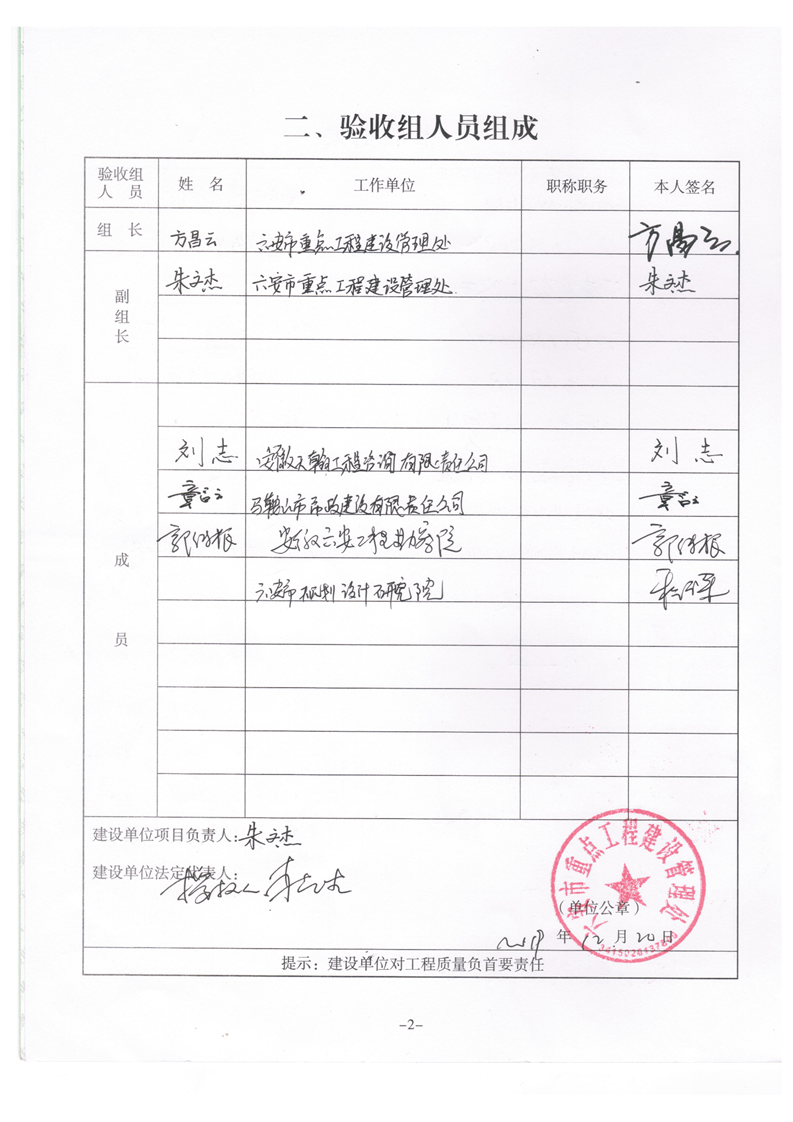 二、验收组人员组成
验收组人员 姓名 工作单位 职称职务 本人签名
组长 方昌云 六安市重点工程建设管理处 方昌云
副组长 朱文杰 六安市重点工程建设管理处 朱文杰
成员
刘志 安徽天翰工程咨询有限责任公司 刘志
章台云 马鞍山市市政建设有限责任公司 章台云
安徽六安工程勘察院
六安市规划设计研究院
建设单位项目负责人：朱文杰
建设单位法定代表人：
授权人 朱文杰
六安市重点工程建设管理处
（单位公章）
年12月20日
提示：建设单位对工程质量负首要责任
-2-